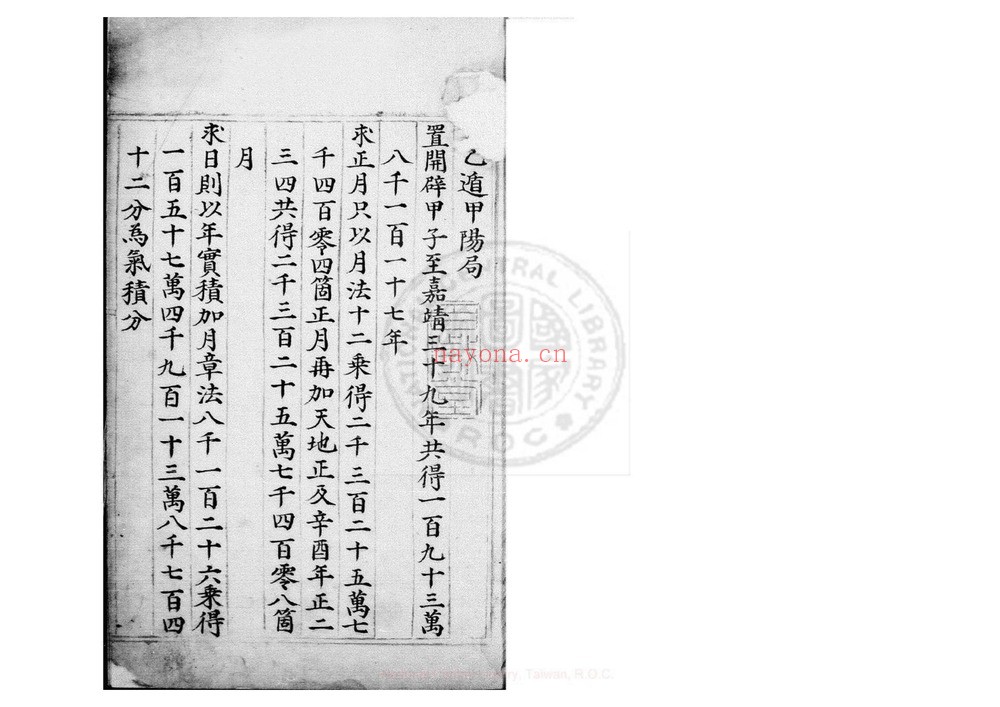 乙遁甲陽局
置開辟甲子至嘉靖三十九年共得一百九十三萬
八千一百一十七年
求正月只以月法十二乘得二千三百二十五萬七
千四百零四箇正月再加天地正及辛酉年正二
三四共得二千三百二十五萬七千四百零八箇
月
求日則以年實積加月章法八千一百二十六乘得
一百五十七萬四千九百一十三萬八千七百四
十二分為氣積分
NATIONAL CENTRAL LIBRARY
R.O.C.
nayona.cn
Library, Taiwan, R.O.C.